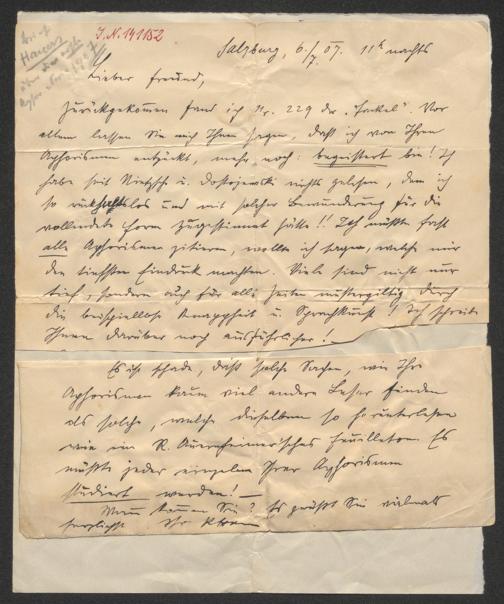 I.N. 141152
Salzburg, 6./7. 07. 11h nachts
Lieber Freund,
Zurückgekommen fand ich Nr. 229 der „Fackel“. Vor
allem lassen Sie mich Ihnen sagen, daß ich von Ihren
Aphorismen entzückt, mehr noch: begeistert bin! Ich
habe seit Nietzsche u. Dostojewski nichts gelesen, dem ich
so rückhaltlos und mit solcher Bewunderung für die
vollendete Form zugestimmt hätte!! Ich müßte fast
alle Aphorismen zitieren, wollte ich sagen, welche mir
den tiefsten Eindruck machten. Viele sind nicht nur
tief, sondern auch für alle Zeiten mustergiltig durch
die beispiellose Knappheit u. Sprachkunst! Ich schreibe
Ihnen darüber noch ausführlicher.
Es ist schade, daß solche Sachen, wie Ihre
Aphorismen kaum viel andere Leser finden
als solche, welche dieselben so herunterlesen
wie ein R. Auernheimersches Feuilleton. Es
müßte jeder einzelne Ihrer Aphorismen
studiert werden! —
Wann kommen Sie? Es grüßt Sie vielmals
herzlichst Ihr